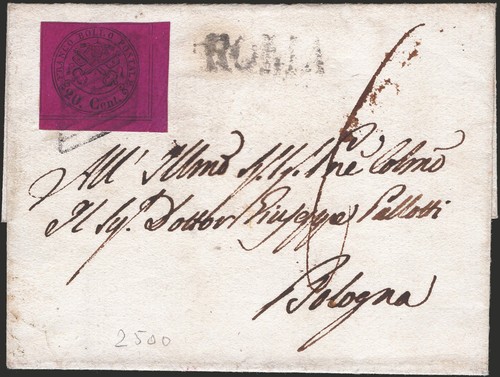 FRANCO BOLLO POSTALE
20 Cent.
ROMA
All' Illmo Sig. Sig. Pne Colmo
Il Sig. Dottor Giuseppe Pallotti
Bologna
2500